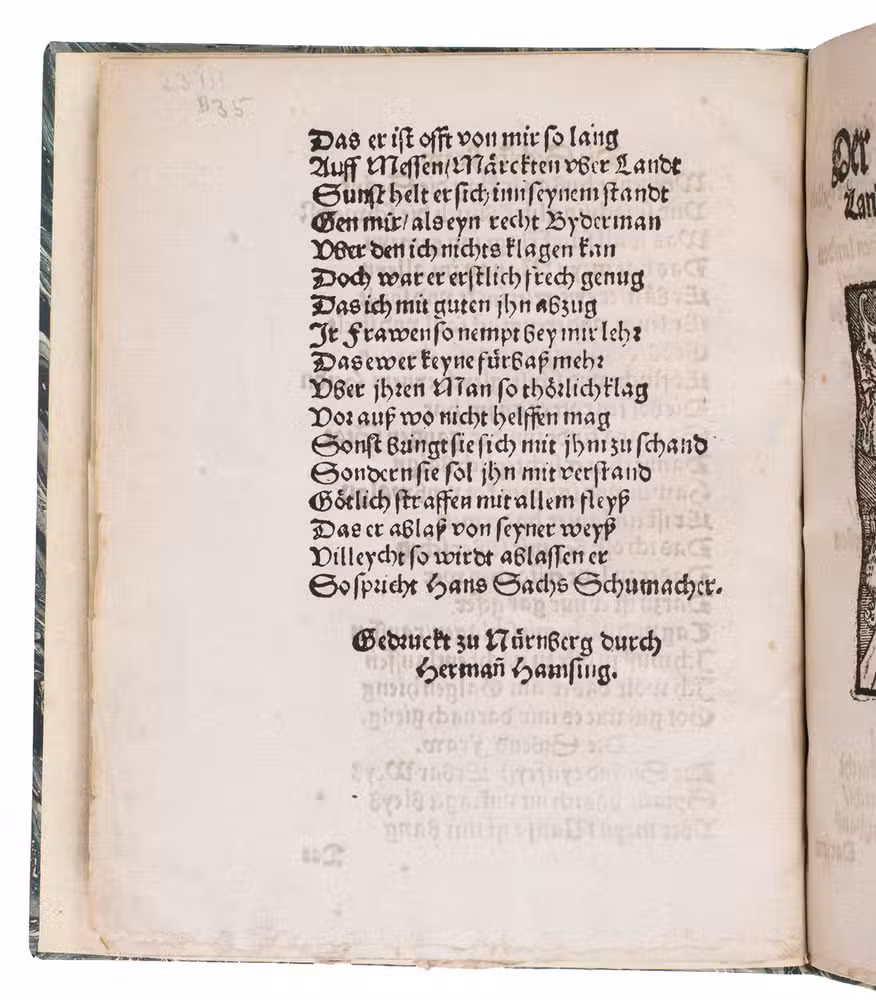 B35
Das er ist offt von mir so lang
Auff Messen/Märckten vber Landt
Sunst helt er sich inn seynem standt
Gen mir/als eyn recht Byderman
Vber den ich nichts klagen kan
Doch war er erstlich frech genug
Das ich mit guten jhn abzug
Jr Frawen so nempt bey mir lehr
Das ewer keyne fürbaß mehr
Vber jhren Man so thörlich klag
Vorauß wo nicht helffen mag
Sonst bringt sie sich mit jhm zu schand
Sondern sie sol jhn mit verstand
Götlich straffen mit allem fleyß
Das er ablaß von seyner weyß
Villeycht so wirdt ablassen er
So spricht Hans Sachs Schumacher.
Gedruckt zu Nürnberg durch
Hermañ Hamsing.
Der